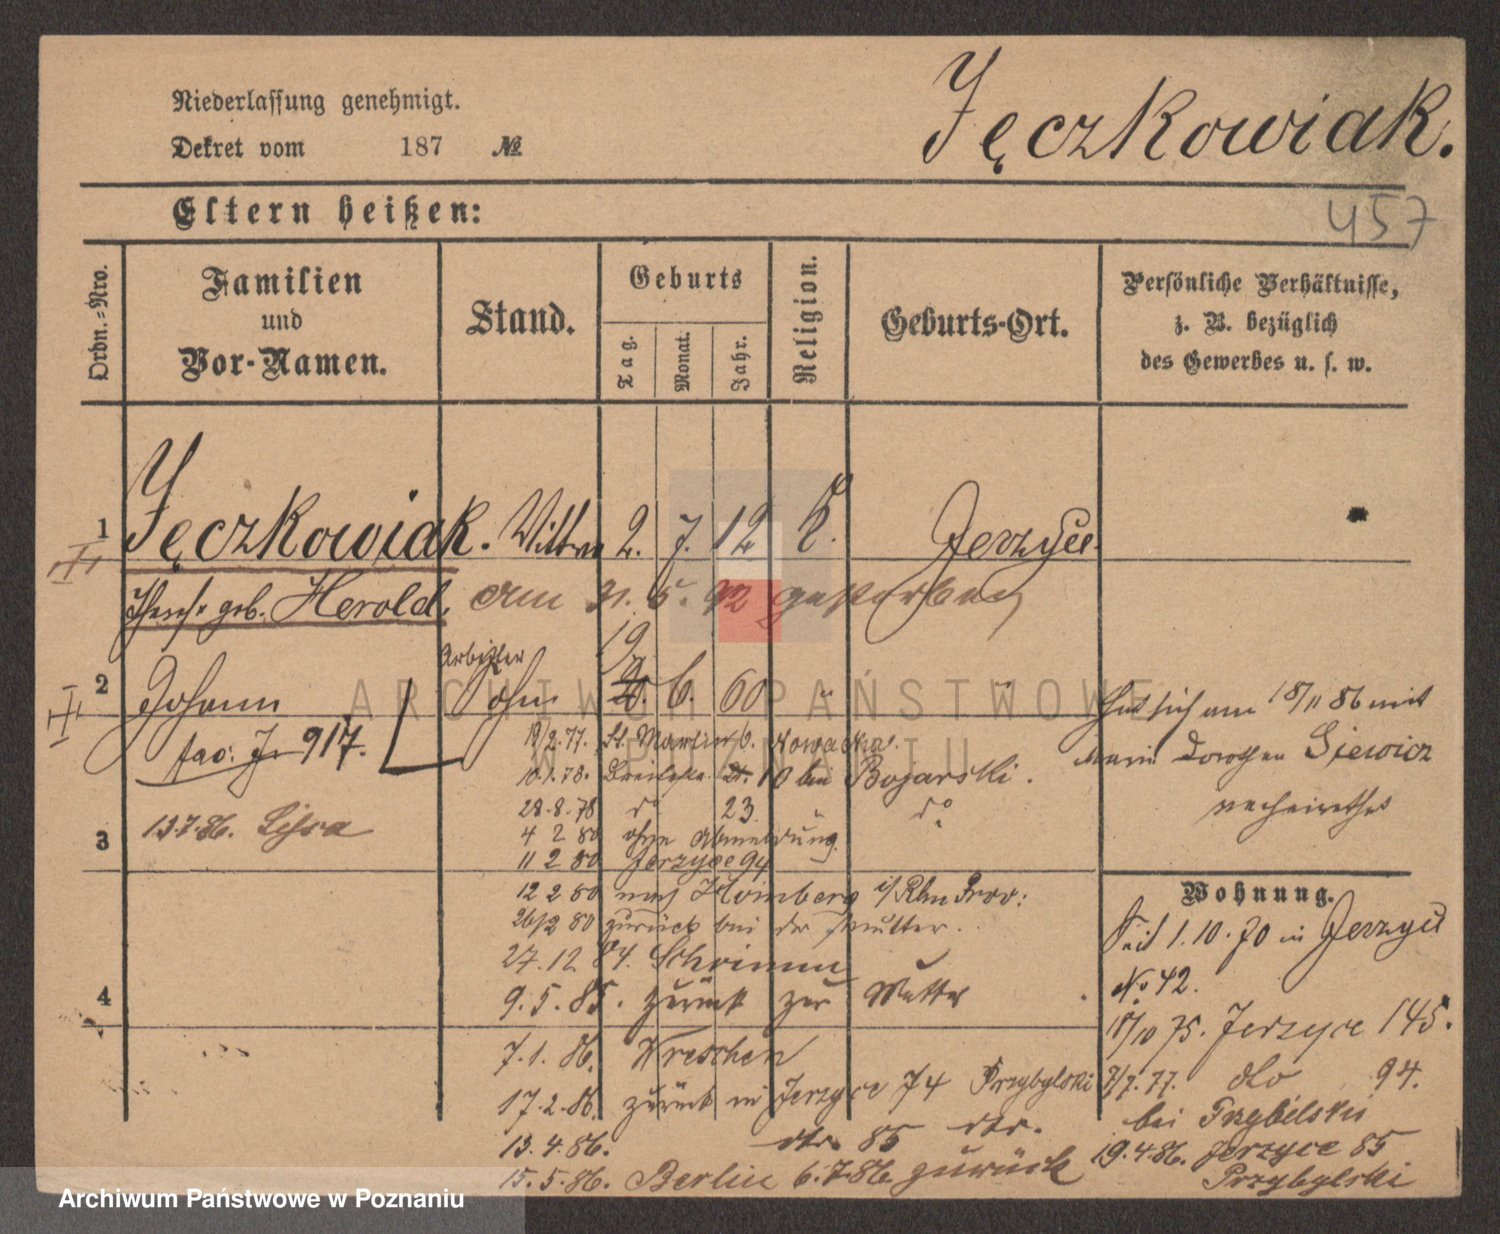 Niederlassung genehmigt.
Dekret vom 187 №
Jęczkowiak.
457
Eltern heißen:
Ordn.-Nro.
Familien
und
Vor-Namen.
Stand.
Geburts
Tag.
Monat.
Jahr.
Religion.
Geburts-Ort.
Persönliche Verhältnisse,
z. B. bezüglich
des Gewerbes u. s. w.
1 Jęczkowiak. Wittwe 2. 7. 12 K. Jerzyce
geb. Herold. am 21. 5. 92 gestorben
Arbeiter 19
2 Johann Sohn 6. 60 " "
fac: J. 917.
Hat sich am 18/11 86 mit
Marie Dorothea Siewicz
verheirathet
19/2.77. St. Martin 6. Nowacka.
10.1.78. 10 bei Bogarski.
13.7.86. Lissa
28.8.78 do 23 " do
3 4 2 80 ohne Abmeldung.
11 2 80 Jerzyce 94
12 2 80 nach Homberg i/Rhn Prov:
26/2 80 zurück bei der Mutter.
27.12 84. Schrimm
4 9.5.85. zurück zur Mutter
7.1.86. Wreschen
17.2.86. zurück in Jerzyce 74 Przybylski
13.4.86. dto. 85 dto.
15.5.86. Berlin 6.7.86. zurück
Wohnung.
Seit 1.10.70 in Jerzyce
No 42.
18/10 75. Jerzyce 145.
7/7.77. dto 94.
bei Przybilski
19.4.86. Jerzyce 85
Przybylski
ARCHIWUM PAŃSTWOWE
W POZNANIU
Archiwum Państwowe w Poznaniu